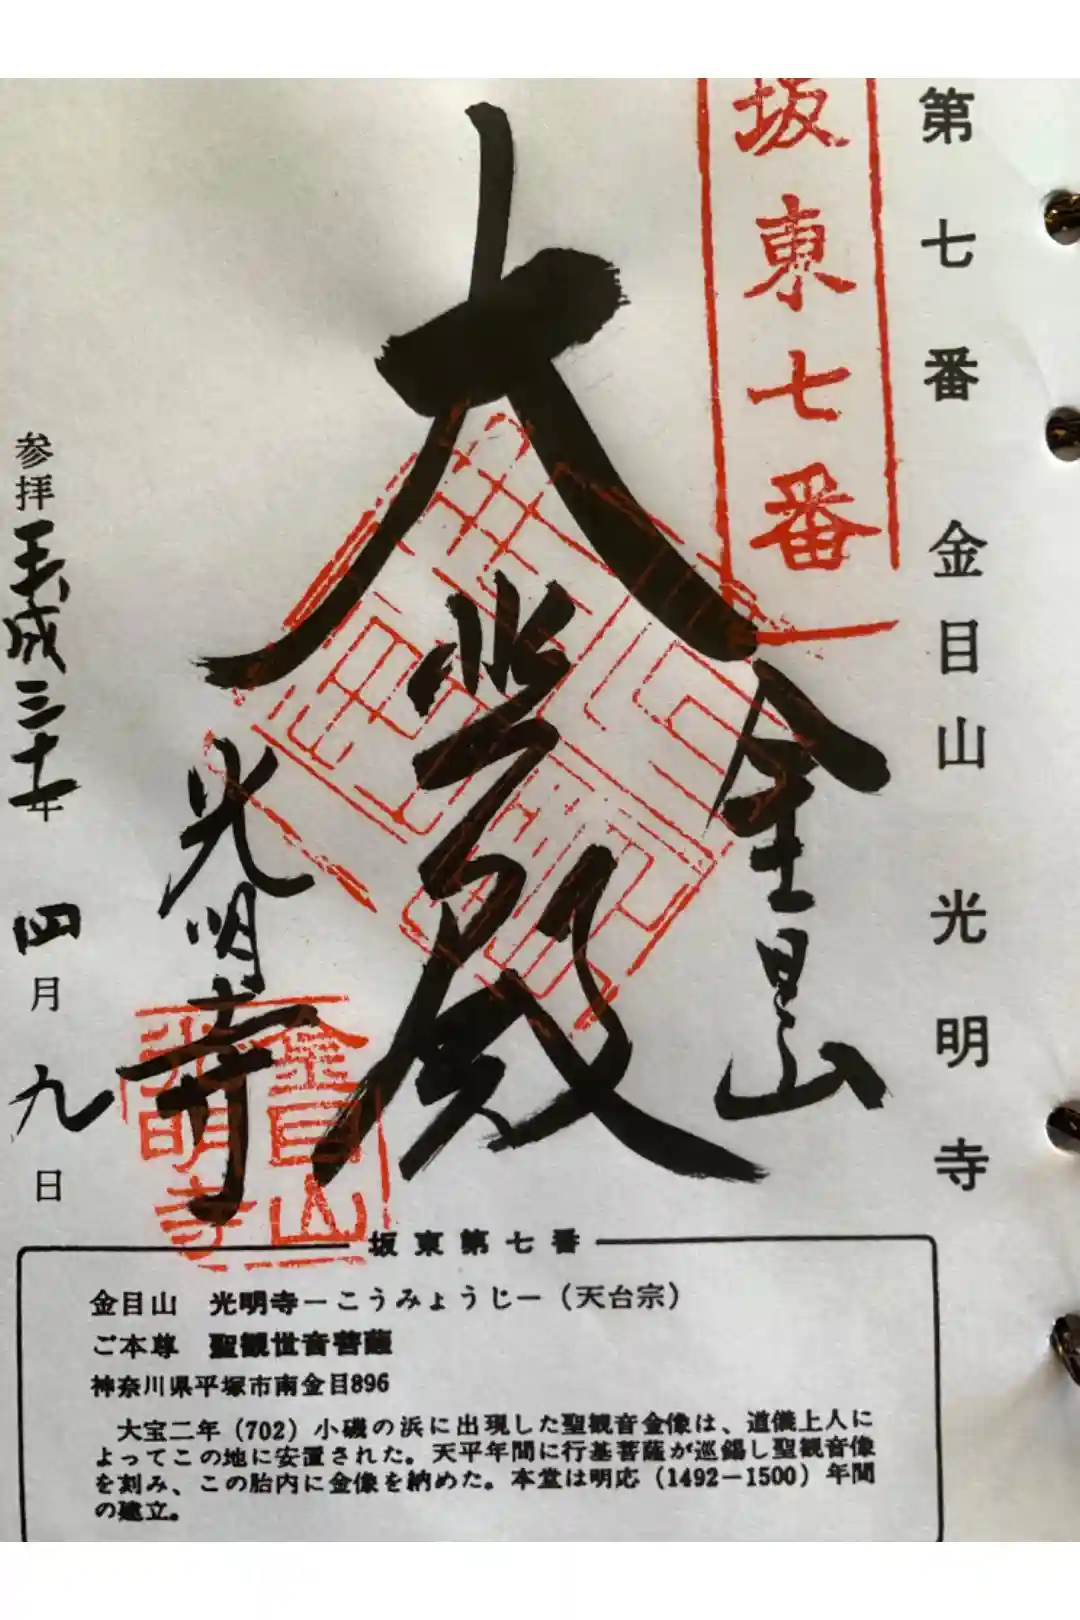 第七番 金目山 光明寺
坂東七番
金目山
大悲殿
光明寺
金目山
光明寺
参拝 平成三十年 四月 九日
坂東第七番
金目山 光明寺－こうみょうじ－（天台宗）
ご本尊 聖観世音菩薩
神奈川県平塚市南金目896
大宝二年（702）小磯の浜に出現した聖観音金像は、道儀上人に
よってこの地に安置された。天平年間に行基菩薩が巡錫し聖観音像
を刻み、この胎内に金像を納めた。本堂は明応（1492－1500）年間
の建立。